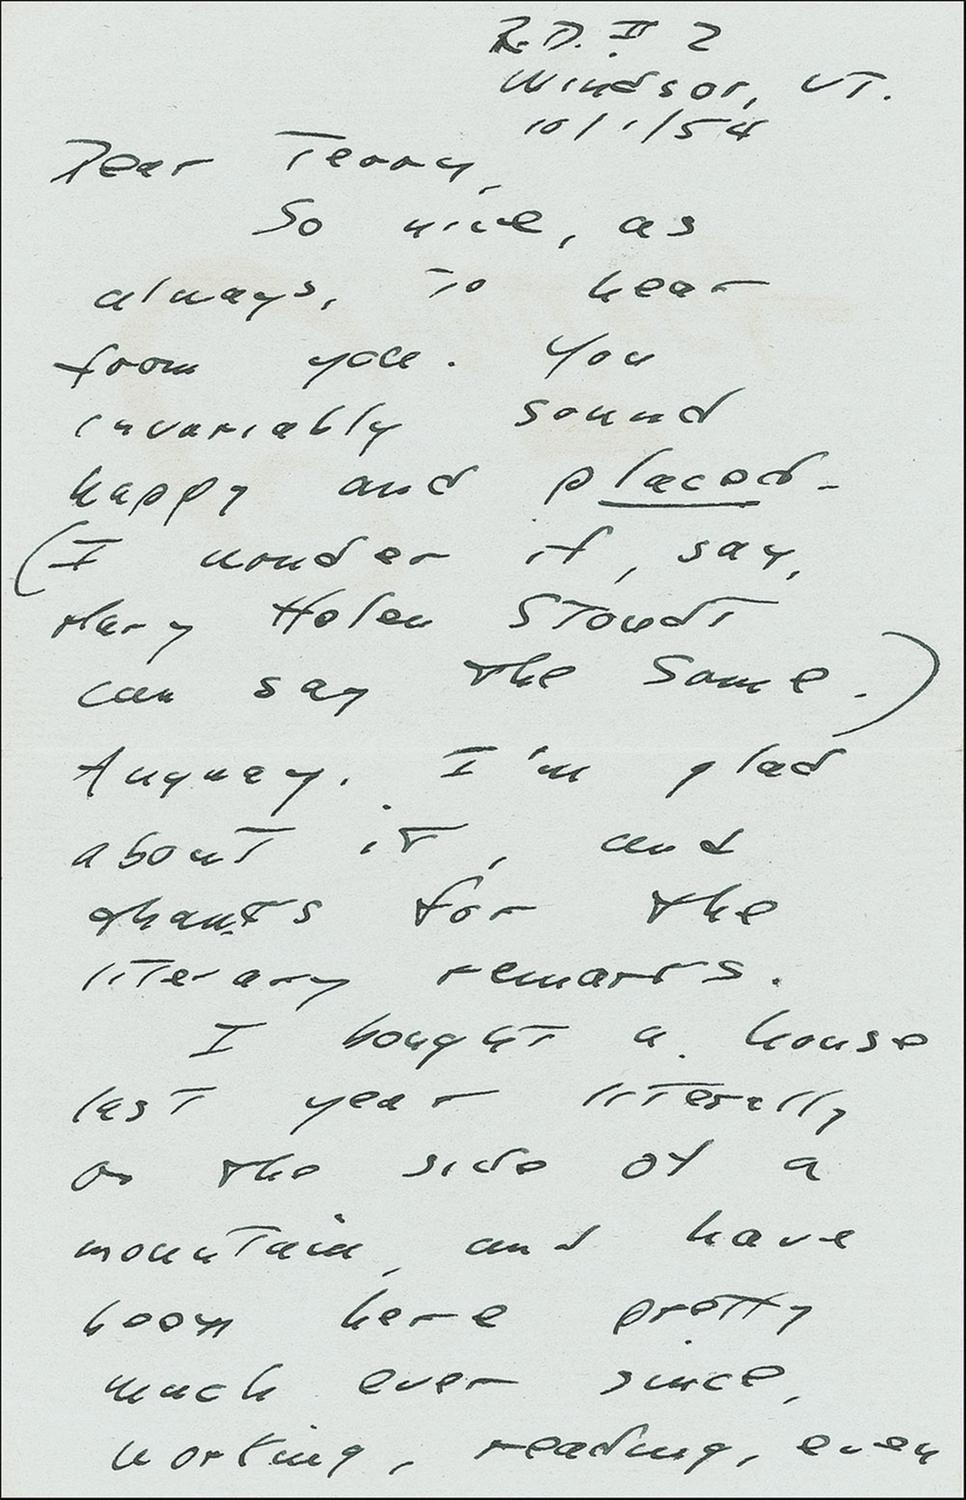 R.D. # 2
Windsor, VT.
10/1/54
Dear Terry,
So nice, as
always, to hear
from you. You
invariably sound
happy and placed.
(I wonder if, say,
Mary Helen Stoudt
can say the same.)
Anyway, I'm glad
about it, and
thanks for the
literary remarks.
I bought a house
last year literally
on the side of a
mountain, and have
been here pretty
much ever since,
working, reading, even